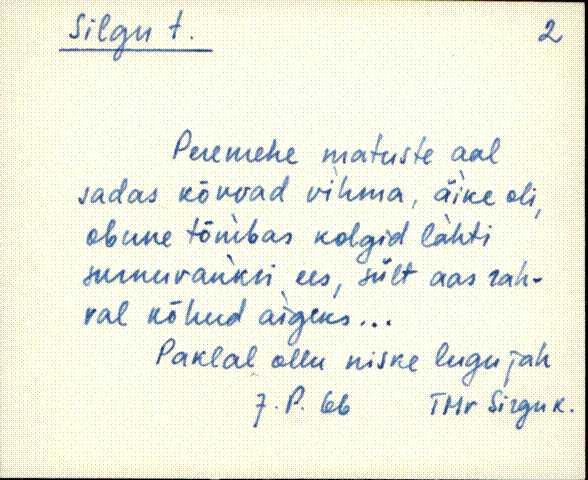 Silgu t. 2
Peremehe matuste aal
sadas kõvvad vihma, äike oli,
obune tõmbas kolgid lahti
surnuvankri ees, sült aas rah-
val kõhud aigeks...
Paklal ollu niske lugu jah
7. P. 66 TMr Sirgu k.